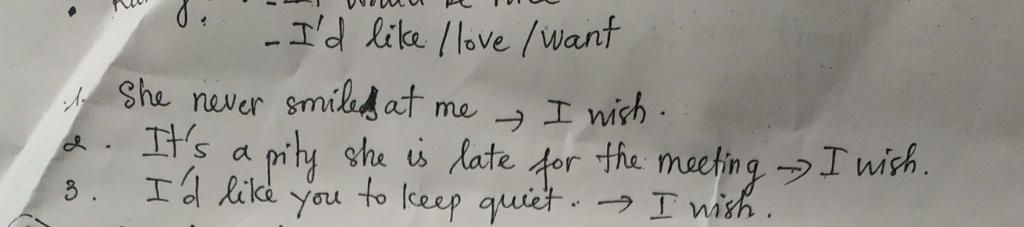 - I'd like / love / want
1. She never smiles at me → I wish.
2. It's a pity she is late for the meeting → I wish.
3. I'd like you to keep quiet. → I wish.